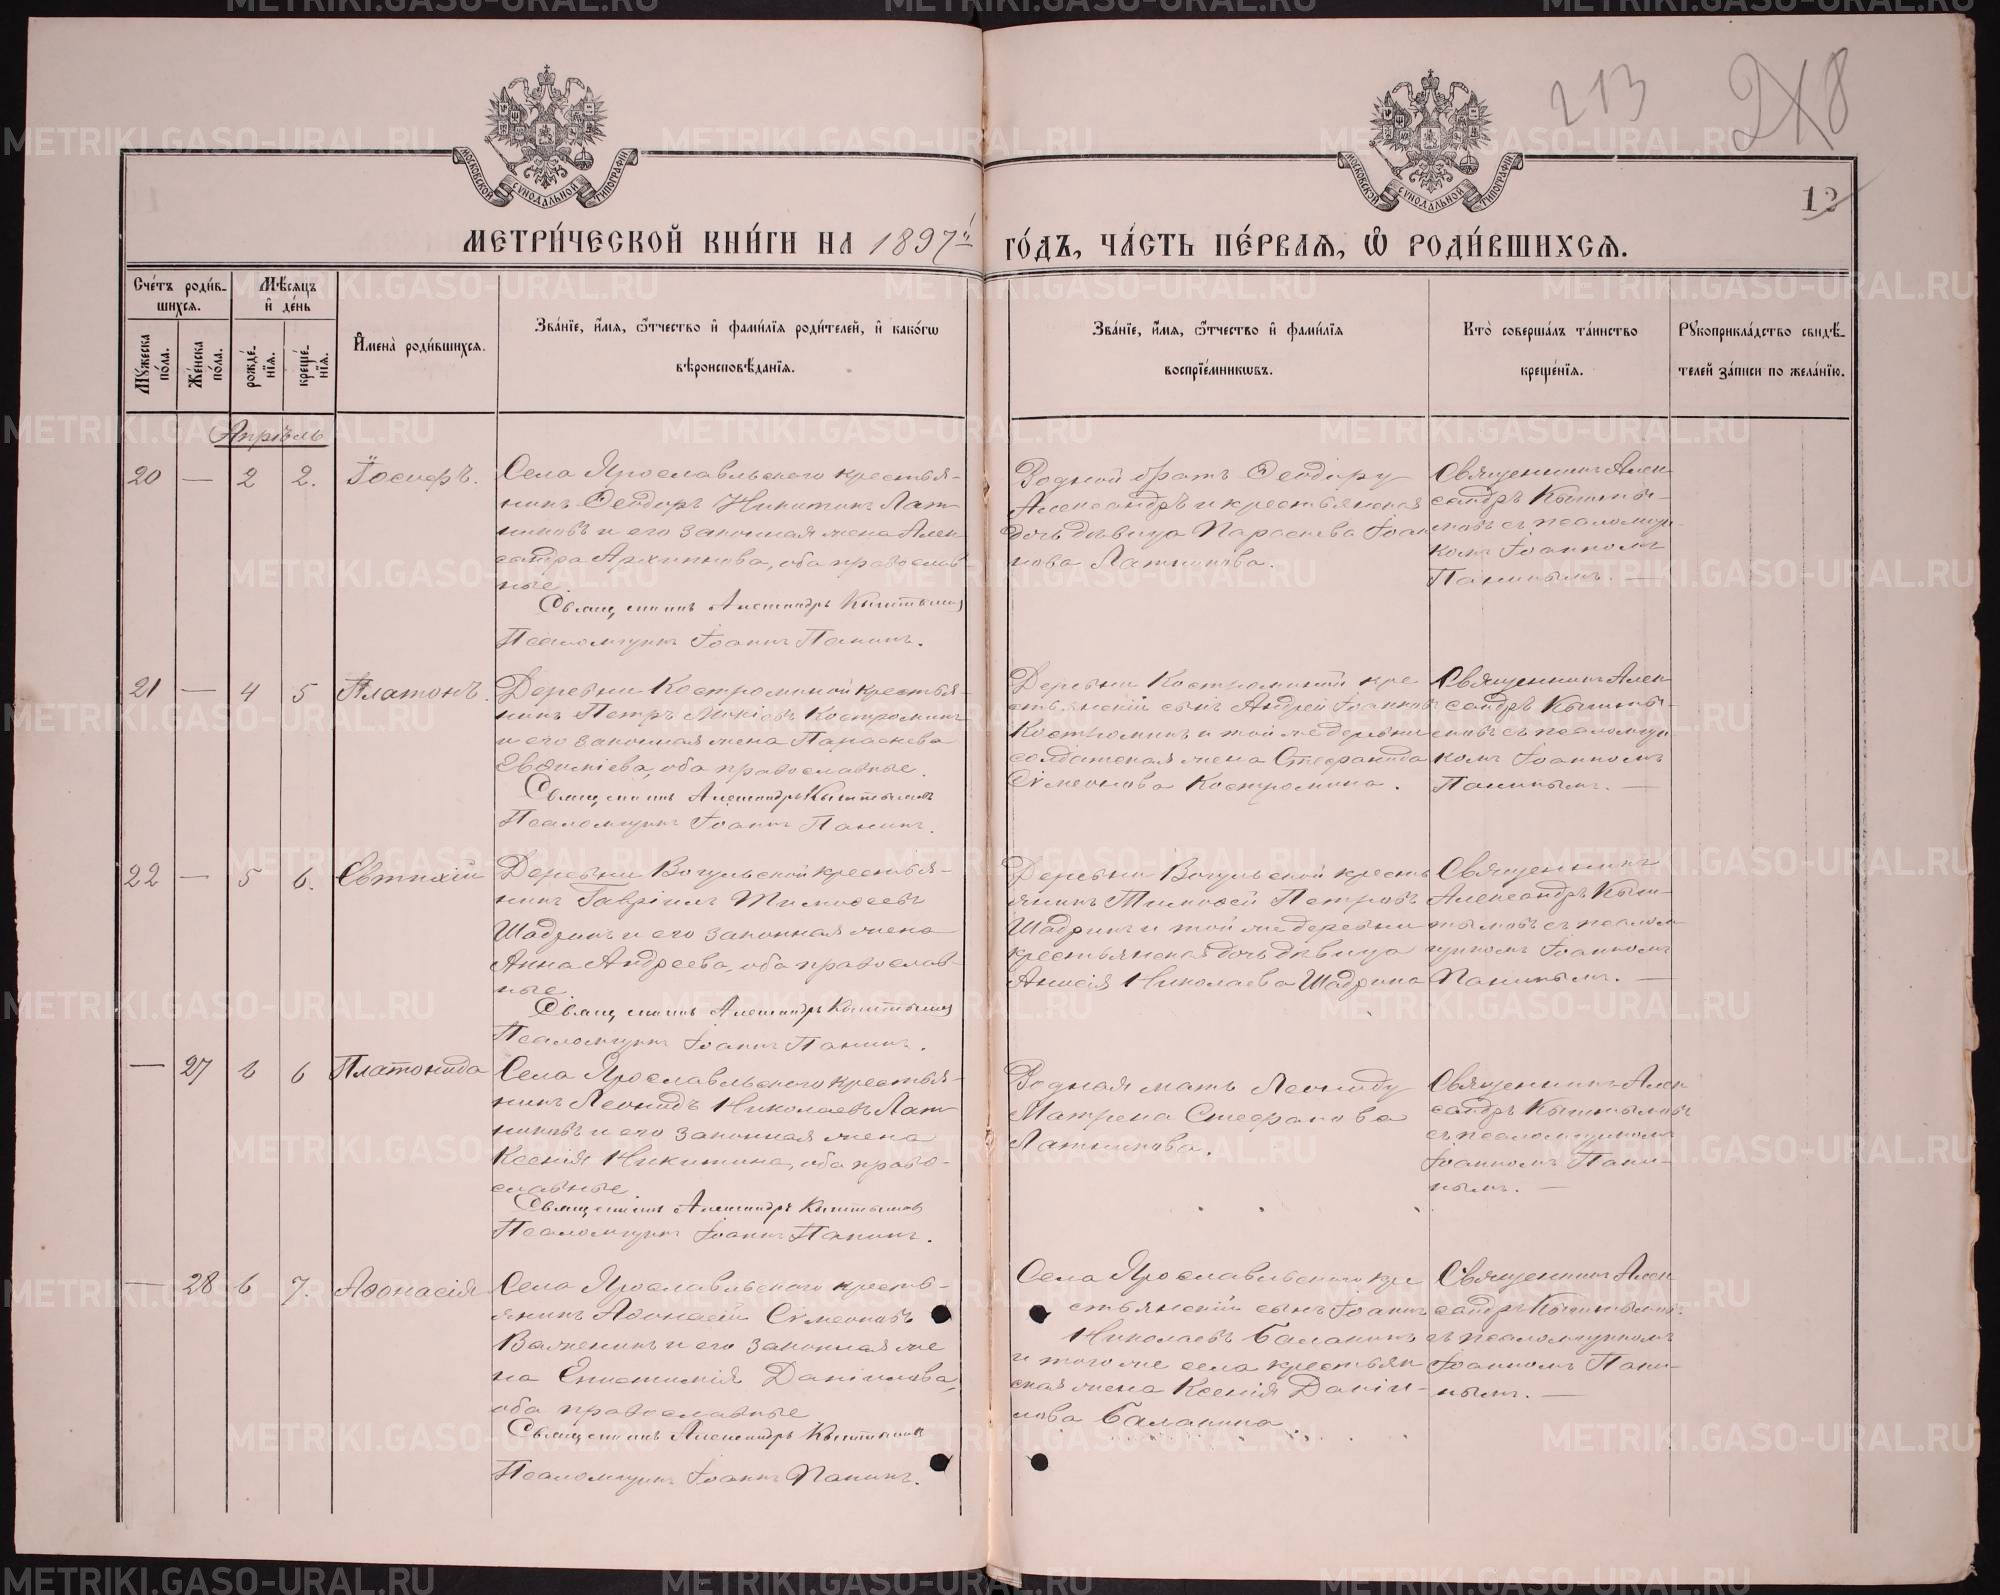 213
2X8
12
МОСКОВСКОЙ СѴНОДАЛЬНОЙ ТИПОГРАФІИ
МОСКОВСКОЙ СѴНОДАЛЬНОЙ ТИПОГРАФІИ
МЕТРИ́ЧЕСКОЙ КНИ́ГИ НА 1897й ГО́ДЪ, ЧА́СТЬ ПЕ́РВАЯ, Ѡ РОДИ́ВШИХСЯ.
Сче́тъ роди́в-
шихся.
Мѣ́сяцъ
и де́нь
Мꙋ́жеска по́ла.
Же́нска по́ла.
рожде́-
нїя.
креще́-
нїя.
И҆мена̀ роди́вшихся.
Зва́нїе, и҆́мя, ѻ҆́тчество и҆ фами́лїя роди́телей, и҆ како́гѡ
вѣроисповѣ́данїя.
Зва́нїе, и҆́мя, ѻ҆́тчество и҆ фами́лїя
воспрїе́мникѡвъ.
Кто̀ соверша́лъ та́инство
креще́нїя.
Рꙋкоприкла́дство свидѣ́-
телей за́писи по жела́нїю.
Апрѣль
20 — 2 2. Іосифъ.
Села Ярославльского крестья-
нинъ Ѳеодоръ Никитинъ Лат-
никовъ и его законная жена Алек-
сандра Архиппова, оба православ-
ные.
Священникъ Александръ Кыштымов
Псаломщикъ Іоаннъ Панинъ.
Родной братъ Ѳеодору
Александръ и крестьянская
дочь дѣвица Параскева Іоан
нова Латникова.
Священникъ Алек-
сандръ Кышты-
мовъ съ псаломщи-
комъ Іоанномъ
Панинымъ. —
21 — 4 5 Платонъ.
Деревни Костроминой крестья-
нинъ Петръ Лукіевъ Костроминъ
и его законная жена Параскева
Евѳиміева, оба православные.
Священникъ Александръ Кыштымовъ
Псаломщикъ Іоаннъ Панинъ.
Деревни Костроминой кре
стьянскій сынъ Андрей Іоанновъ
Костроминъ и той же деревни
солдатская жена Стефанида
Сѵмеонова Костромина.
Священникъ Алек-
сандръ Кышты-
мовъ съ псаломщи
комъ Іоанномъ
Панинымъ. —
22 — 5 6. Евтихій
Деревни Вогульской крестья-
нинъ Гавріилъ Тимоѳеевъ
Шадринъ и его законная жена
Анна Андреева, оба православ-
ные.
Священникъ Александръ Кыштымов
Псаломщикъ Іоаннъ Панинъ.
Деревни Вогульской кресть
янинъ Тимоѳей Петровъ
Шадринъ и той же деревни
крестьянская дочь дѣвица
Анисія Николаева Шадрина
Священникъ
Александръ Кыш-
тымовъ съ псалом
щикомъ Іоанномъ
Панинымъ. —
— 27 6 6 Платонида
Села Ярославльского крестья-
нинъ Леонидъ Николаевъ Лат-
никовъ и его законная жена
Ксенія Никитина, оба право-
славные.
Священникъ Александръ Кыштымов
Псаломщикъ Іоаннъ Панинъ.
Родная мать Леониду
Матрена Стефанова
Латникова.
Священникъ Алек
сандръ Кыштымовъ
съ псаломщикомъ
Іоанномъ Пани-
нымъ. —
— 28 6 7. Аѳонасія
Села Ярославльского кресть-
янинъ Аѳонасій Сѵмеоновъ
Важенинъ и его законная же
на Епистимія Даніилова,
оба православные
Священникъ Александръ Кыштымов
Псаломщикъ Іоаннъ Панинъ.
Села Ярославльского кре
стьянскій сынъ Іоаннъ
Николаевъ Балакинъ
и того же села крестьян
ская жена Ксенія Даніи-
лова Балакина
Священникъ Алек
сандръ Кыштымовъ
съ псаломщикомъ
Іоанномъ Пани-
нымъ. —
METRIKI.GASO-URAL.RU